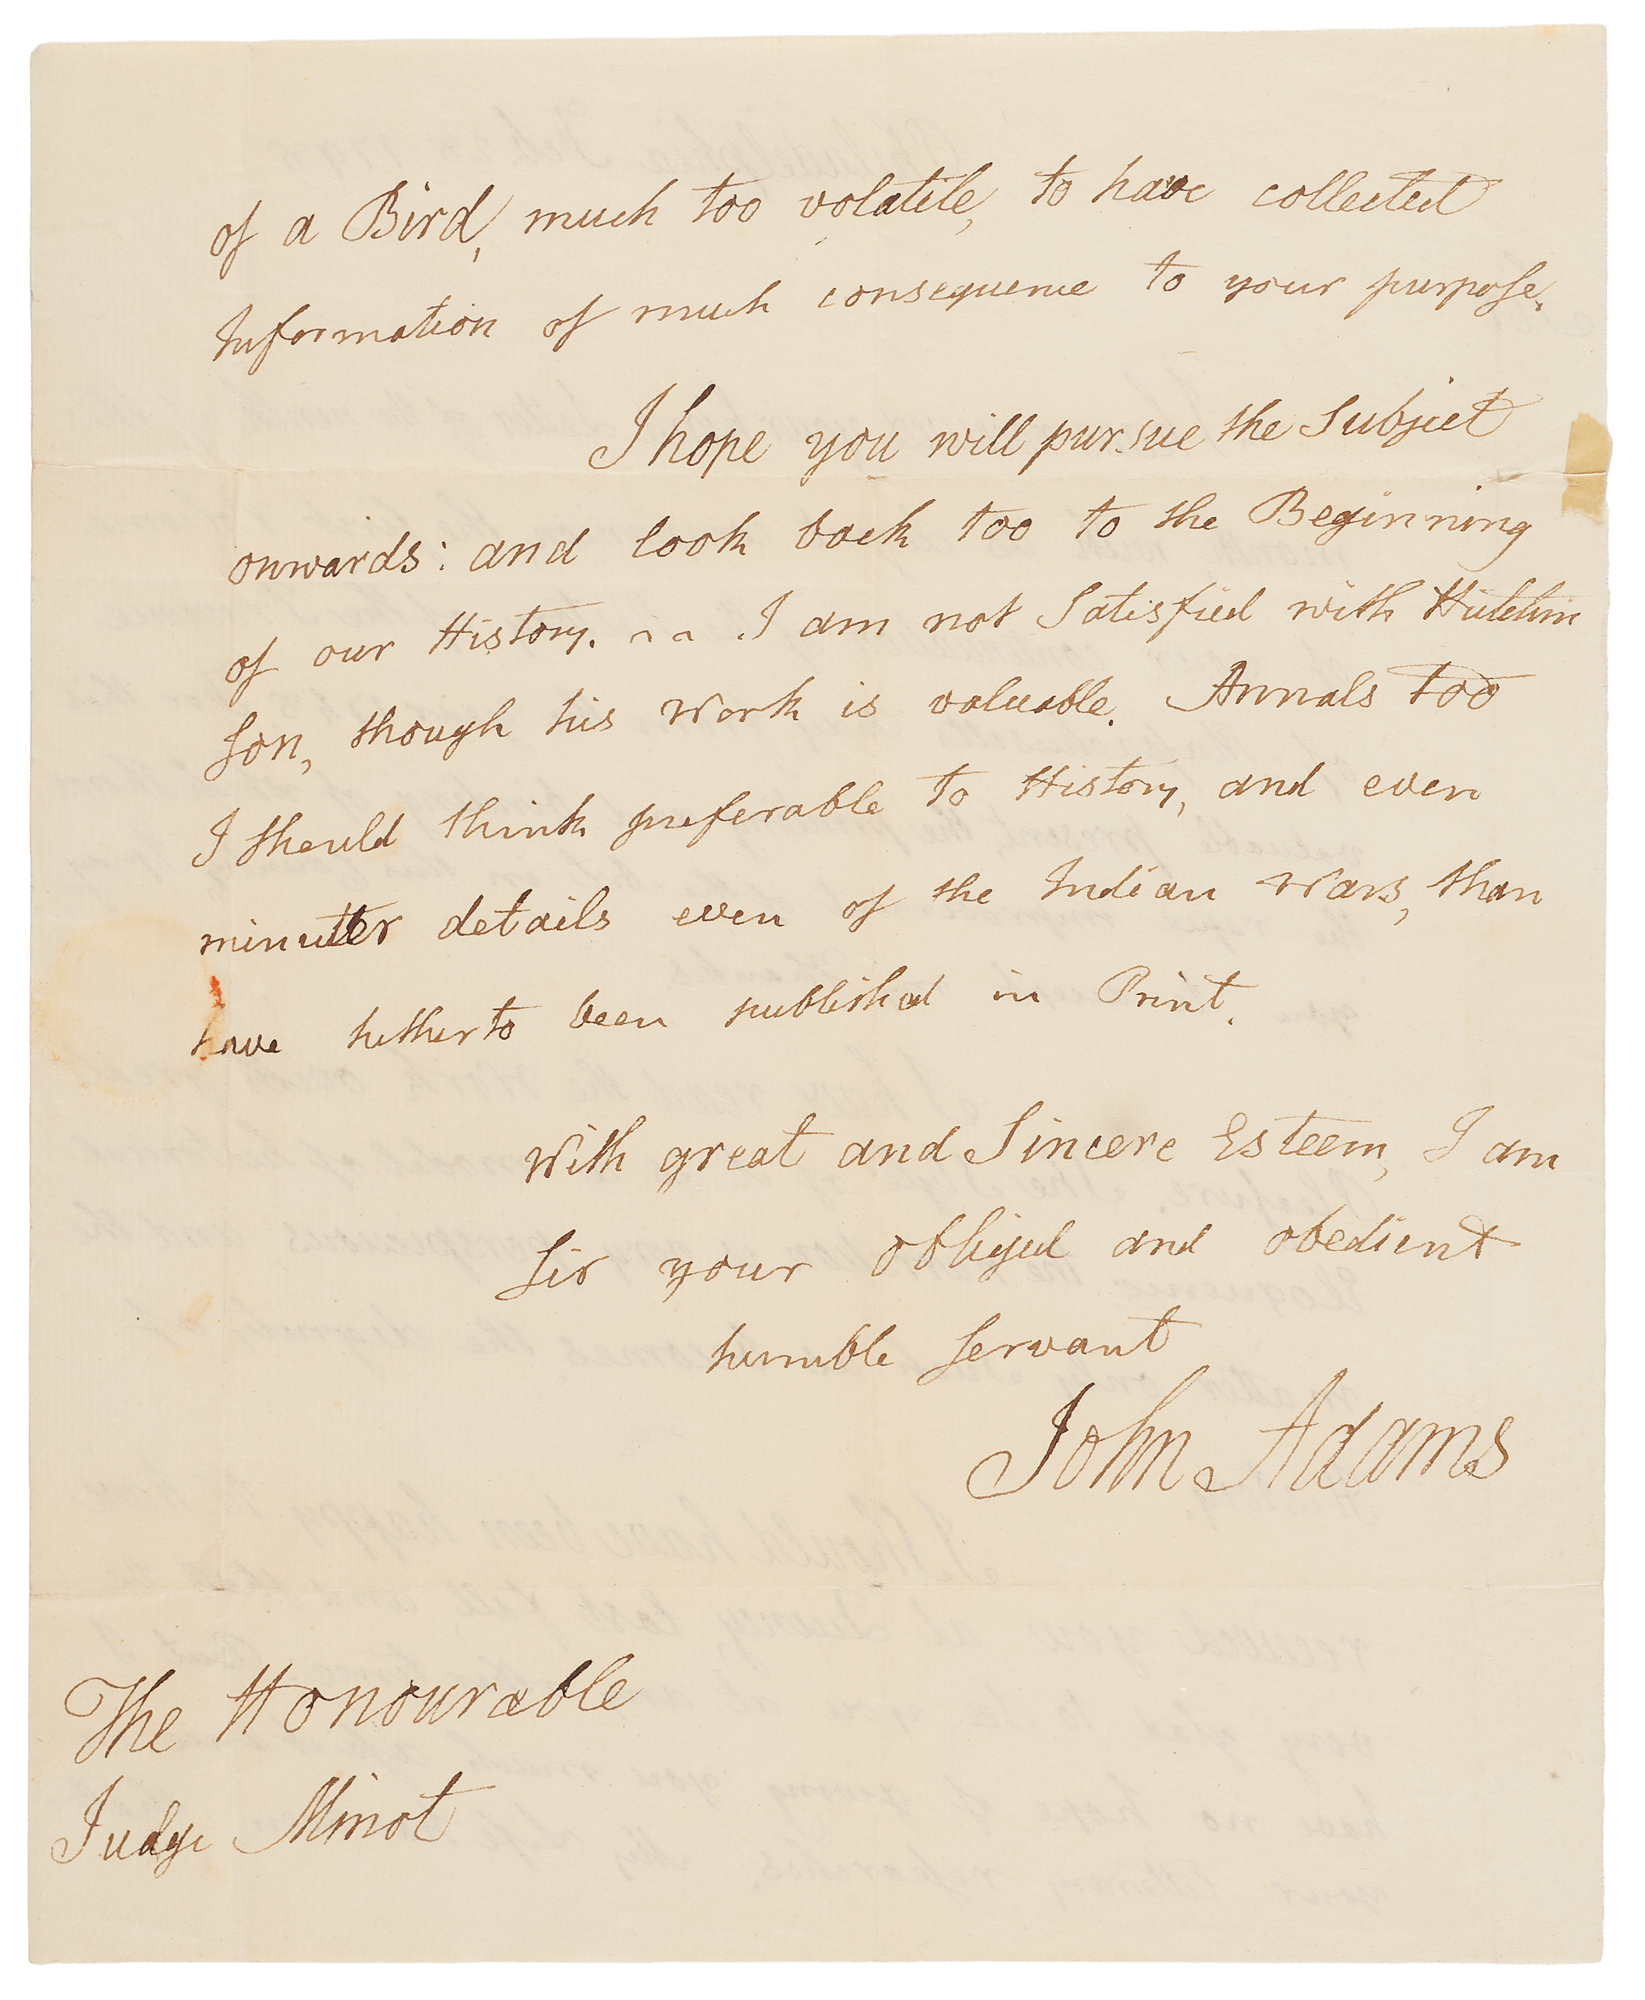 of a Bird, much too volatile, to have collected
Information of much consequence to your purpose.
I hope you will pursue the Subject
onwards: and look back too to the Beginning
of our History. I am not Satisfied with Hutchin
son, though his Work is valuable. Annals too
I should think preferable to History, and even
minuter details even of the Indian Wars, than
have hitherto been published in Print.
With great and Sincere Esteem, I am
Sir your obliged and obedient
humble Servant
John Adams
The Honourable
Judge Minot